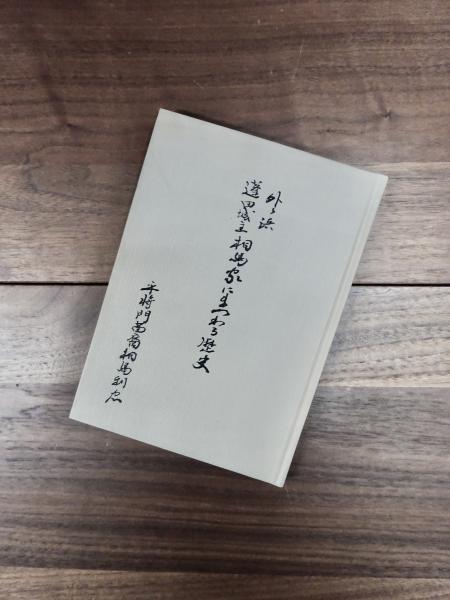 外ヶ浜
蓬田城主相馬家にまつわる歴史
平将門苗裔相馬利忠